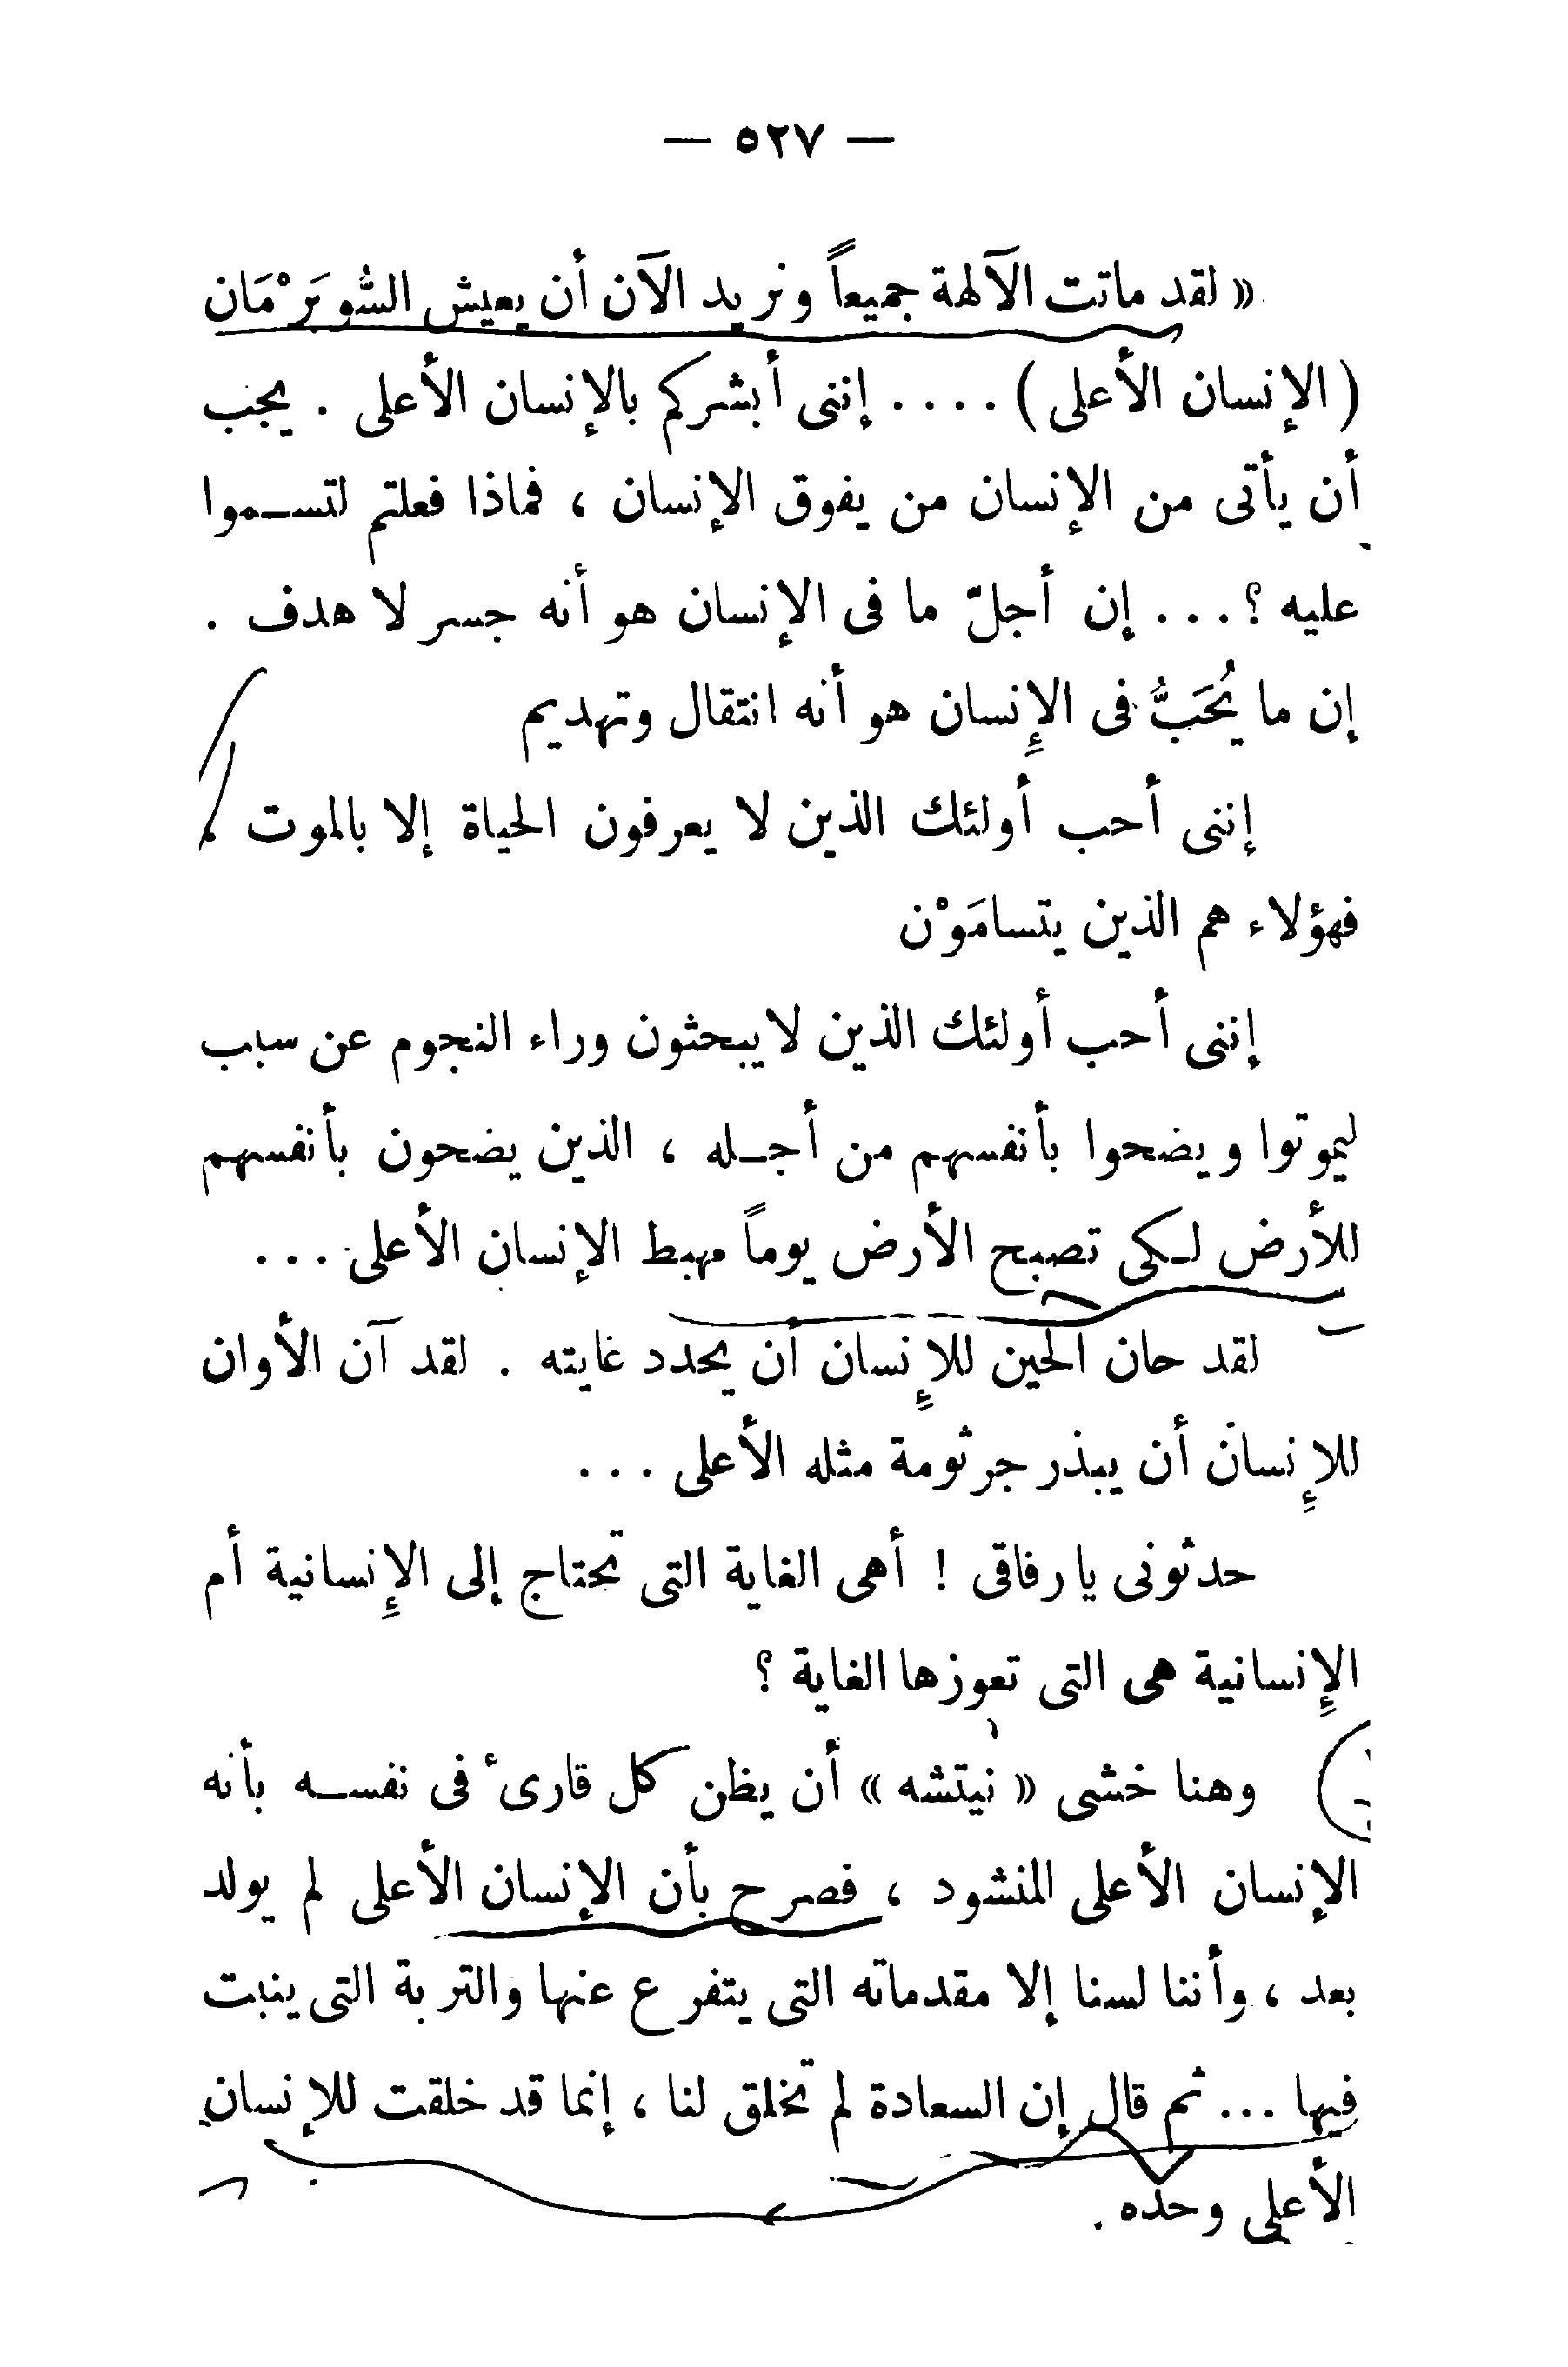 — ٥٢٧ —
« لقد ماتت الآلهة جميعاً ونريد الآن أن يعيش السُّوبَرْمَان
( الإنسان الأعلى ) .... إننى أبشركم بالإنسان الأعلى . يجب
أن يأتى من الإنسان من يفوق الإنسان ، فماذا فعلتم لتسموا
عليه ؟ ... إن أجلّ ما فى الإنسان هو أنه جسر لا هدف .
إن ما يُحَبُّ فى الإِنسان هو أنه انتقال وتهديم
إننى أحب أولئك الذين لا يعرفون الحياة إلا بالموت ،
فهؤلاء هم الذين يتسامَوْن
إننى أحب أولئك الذين لا يبحثون وراء النجوم عن سبب
ليموتوا ويضحوا بأنفسهم من أجله ، الذين يضحون بأنفسهم
للأرض لكى تصبح الأرض يوماً مهبط الإنسان الأعلى ...
لقد حان الحين للإِنسان أن يحدد غايته . لقد آن الأوان
للإِنسان أن يبذر جرثومة مثله الأعلى ...
حدثونى يا رفاقى ! أهى الغاية التى تحتاج إلى الإِنسانية أم
الإِنسانية هى التى تعوزها الغاية ؟
وهنا خشى « نيتشه » أن يظن كل قارئ فى نفسه بأنه
الإنسان الأعلى المنشود ، فصرح بأن الإنسان الأعلى لم يولد
بعد ، وأننا لسنا إلا مقدماته التى يتفرع عنها والتربة التى ينبت
فيها ... ثم قال إن السعادة لم تخلق لنا ، إنما قد خلقت للإنسان
الأعلى وحده .